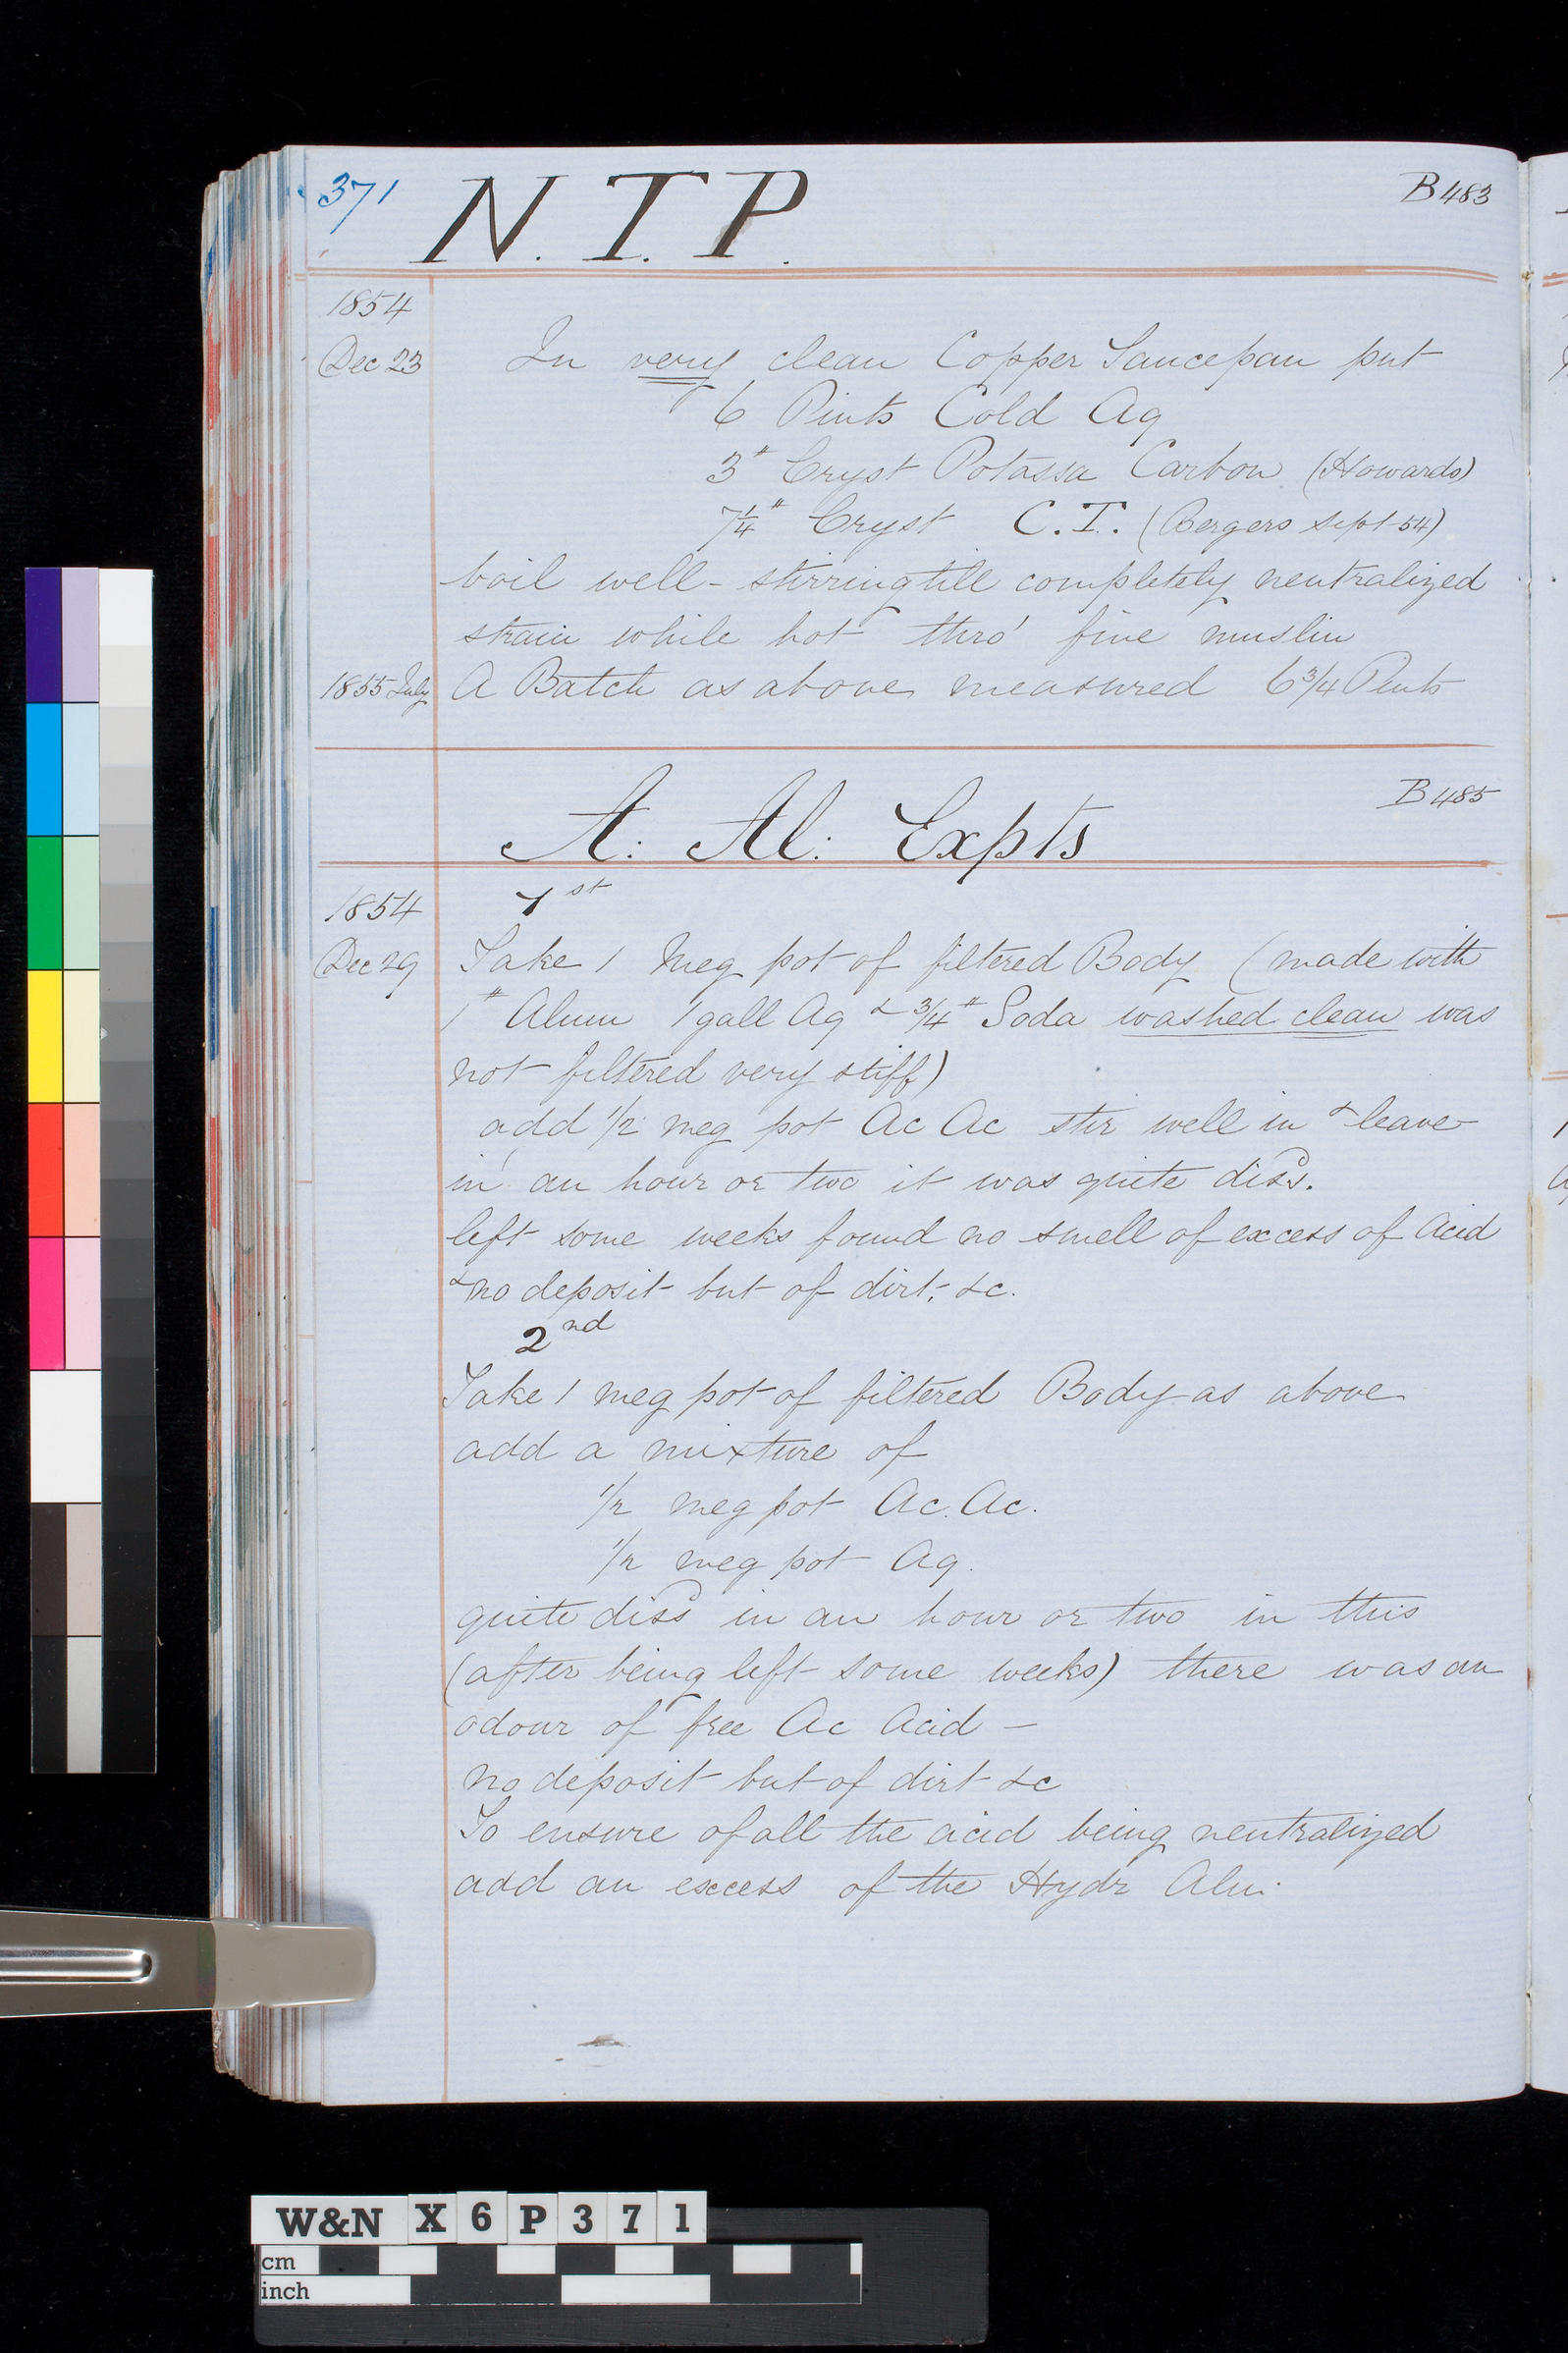 371
N. T. P.
B 483
1854
Dec 23
In very clean Copper Saucepan put
6 Pints Cold Aq
3# Cryst Potassa Carbon (Howards)
7 1/4# Cryst C.T. (Bergers Sept 54)
boil well - stirring till completely neutralized
strain while hot thro' fine muslin
1855 July
A Batch as above measured 6 3/4 Pints
B 485
A: Al: Expts
1854
1st
Dec 29
Take 1 Meg pot of filtered Body (made with
1# Alum 1 gall Aq & 3/4# Soda washed clean was
not filtered very stiff)
add 1/2 meg pot Ac Ac stir well in & leave
in an hour or two it was quite dissd.
left some weeks found no smell of excess of Acid
& no deposit but of dirt, &c.
2nd
Take 1 meg pot of filtered Body as above
add a mixture of
1/2 meg pot Ac. Ac.
1/2 meg pot Aq.
quite dissd in an hour or two in this
(after being left some weeks) there was an
odour of free Ac Acid —
no deposit but of dirt &c
To ensure of all the acid being neutralized
add an excess of the Hydr Alm:
W&N X6P371
cm
inch